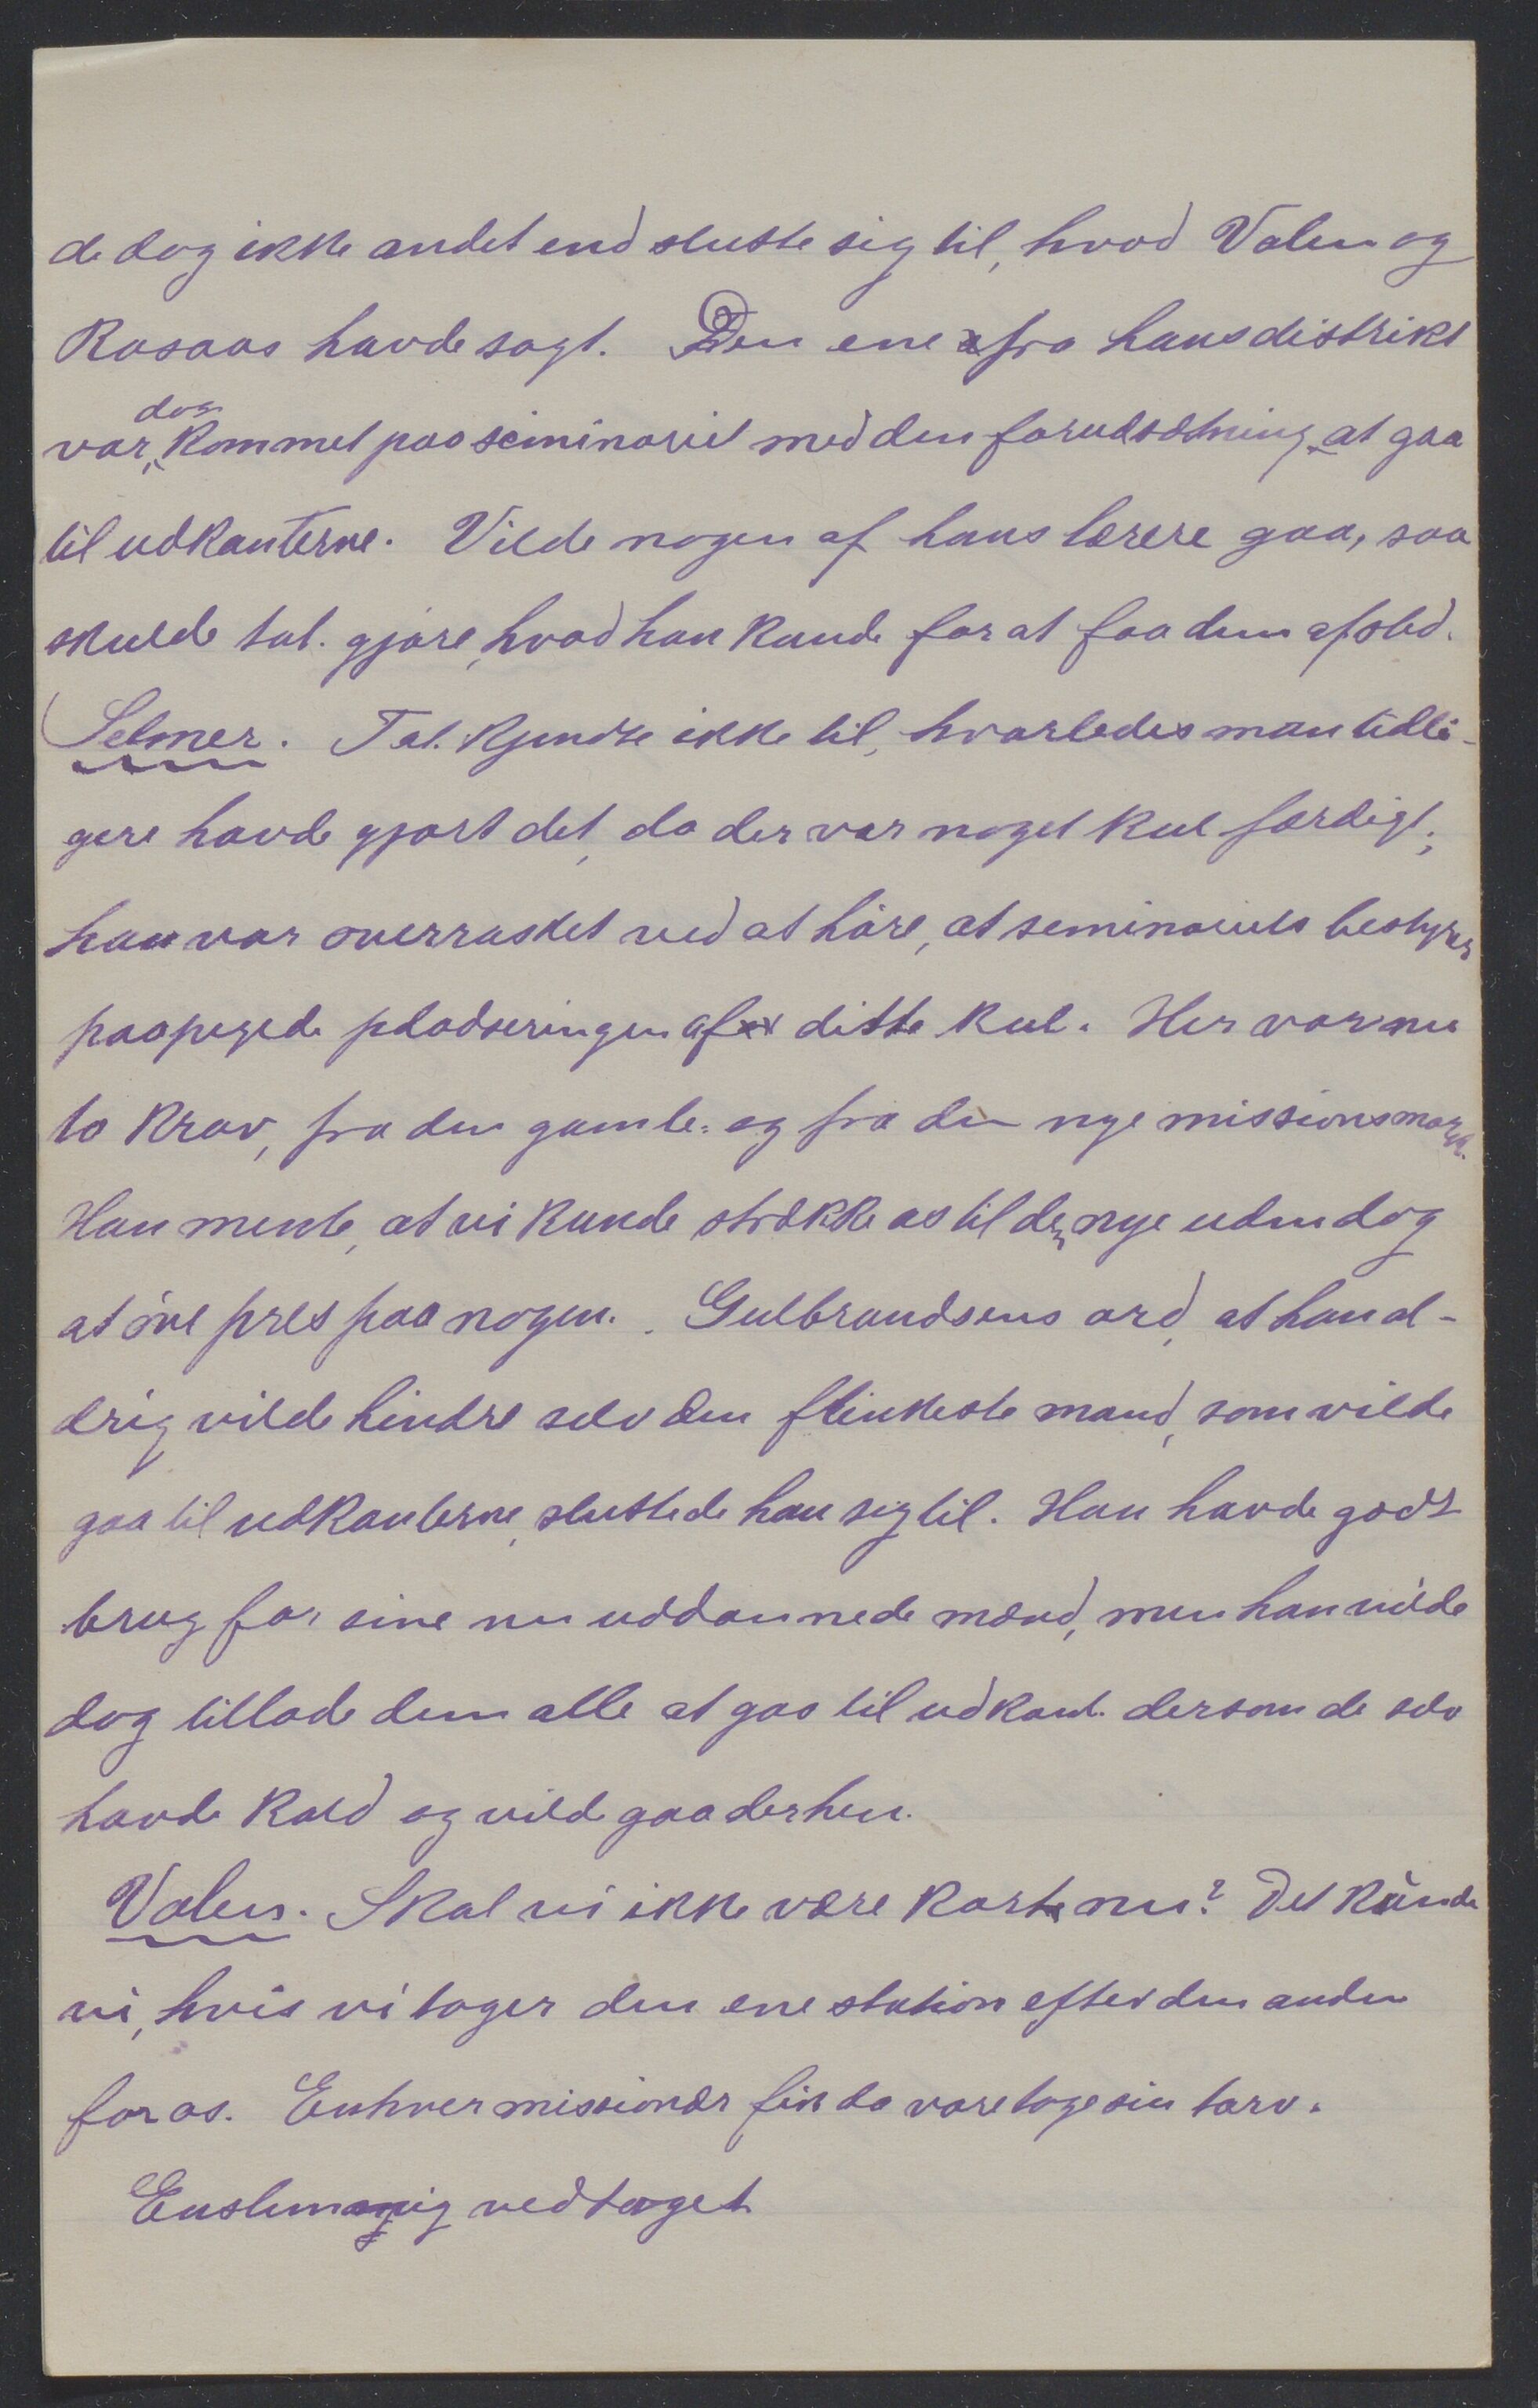 de dog ikke andet end slutte sig til, hvad Valen og
Rosaas havde sagt. Den ene fra hans distrikt
var dog kommet paa seminariet med den forudsætning at gaa
til udkanterne. Vilde nogen af hans lærere gaa, saa
skulde tal. gjøre, hvad han kunde for at faa dem afsted.
Selmer. Tal. kjendte ikke til, hvorledes man tidli-
gere havde gjort det, da der var noget kul færdigt;
han var overrasket ved at høre, at seminariets bestyrer
paapegede pladseringen af dette kul. Her var nu
to krav, fra den gamle- og fra den nye missionsmark.
Han mente, at vi kunde strække os til den nye uden dog
at øve pres paa nogen. Gulbrandsens ord, at han al-
drig vilde hindre selv den flinkeste mand, som vilde
gaa til udkanterne, sluttede han sig til. Han havde godt
brug for sine nu uddannede mænd, men han vilde
dog tillade dem alle at gaa til udkant. dersom de selv
havde kald og vild gaa derhen.
Valen. Skal vi ikke være korte nu? Det kunde
vi, hvis vi tager den ene station efter den anden
for os. Enhver missionær fik da varetage sin tarv.
Enstemmig vedtaget